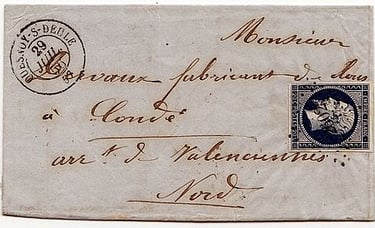 QUESNOY-S-DEULE
29
JUIL.
Monsieur
fabricant de
à Condé
arr.t de Valenciennes
Nord